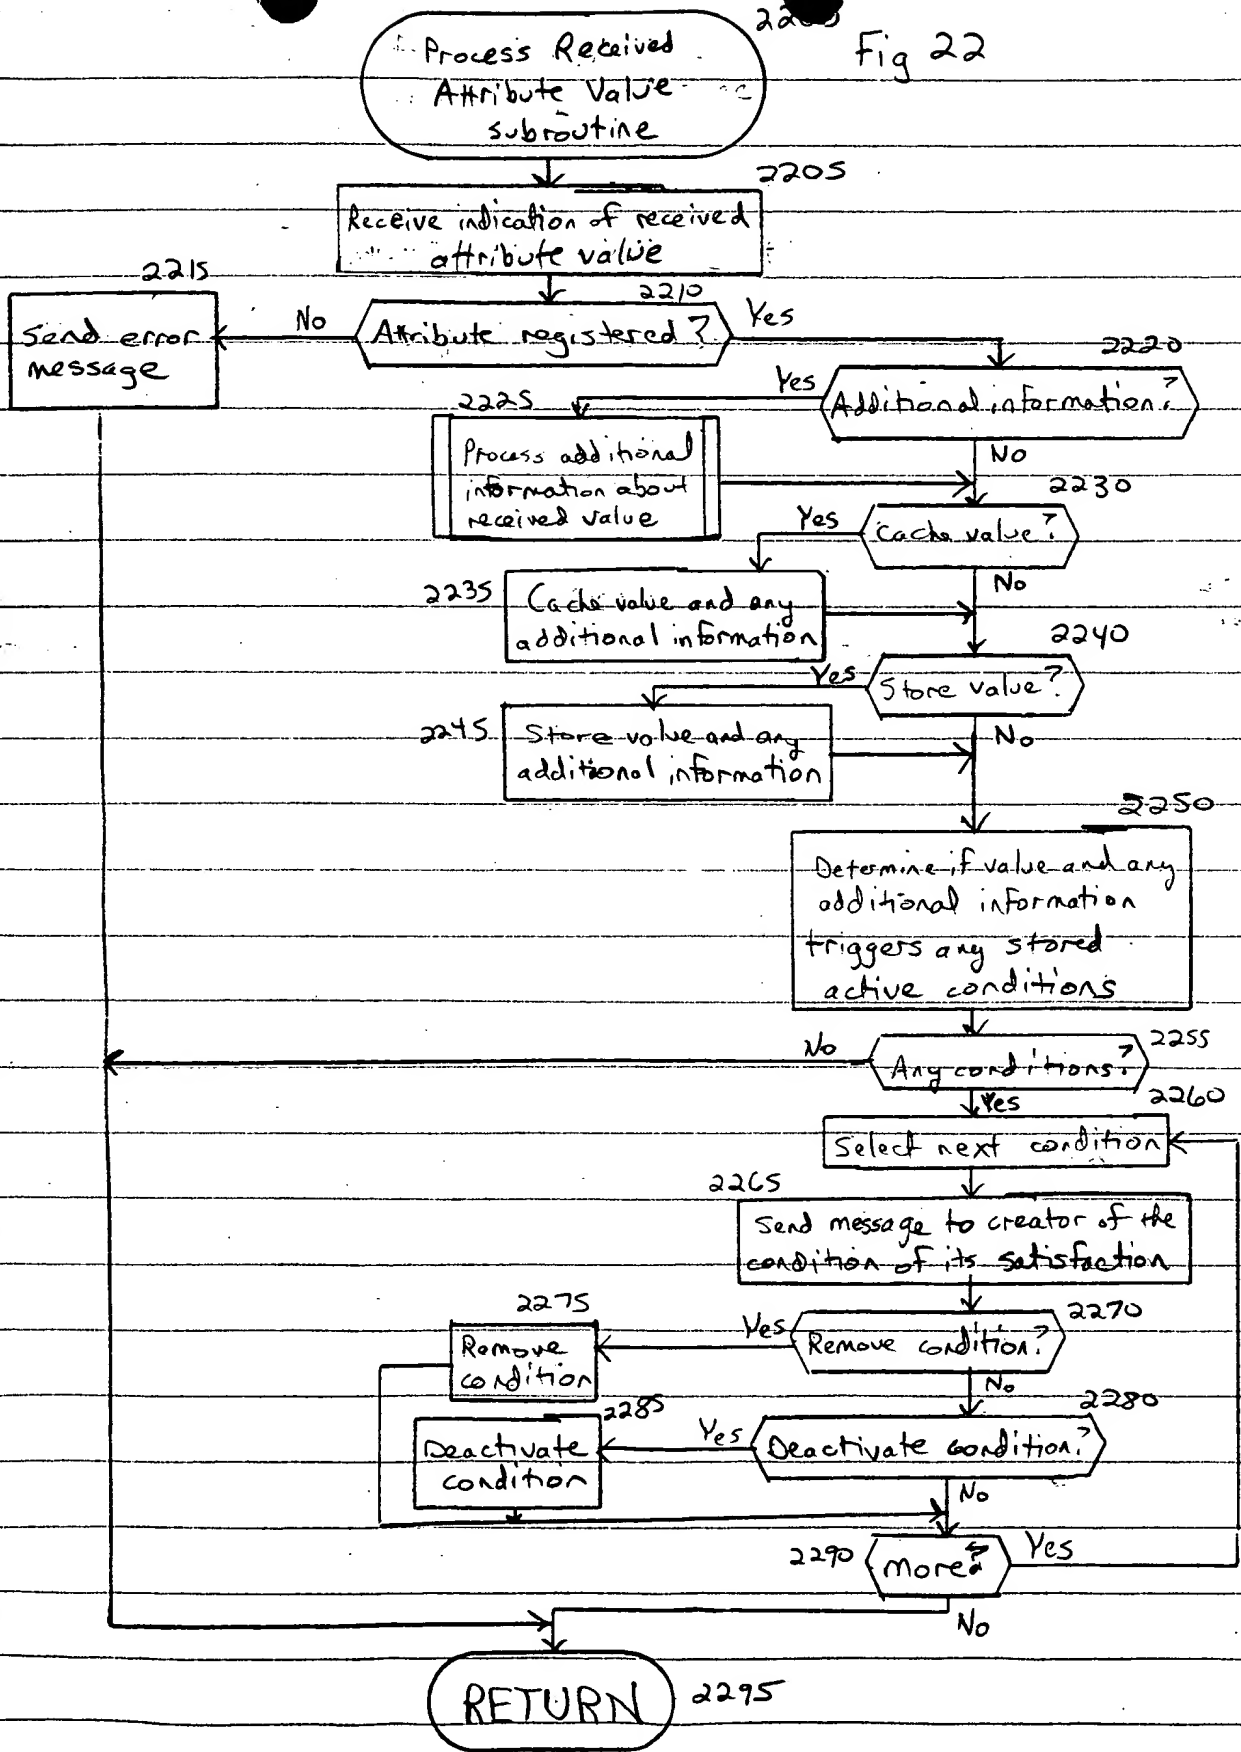 Fig 22
Process Received
Attribute Value
subroutine
2205
Receive indication of received
attribute value
2210
Attribute registered?
No
Yes
2215
Send error
message
2220
Additional information?
Yes
No
2225
Process additional
information about
received value
2230
Cache value?
Yes
No
2235
Cache value and any
additional information
2240
Store value?
Yes
No
2245
Store value and any
additional information
2250
Determine if value and any
additional information
triggers any stored
active conditions
2255
Any conditions?
No
Yes
2260
Select next condition
2265
Send message to creator of the
condition of its satisfaction
2270
Remove condition?
Yes
No
2275
Remove
condition
2280
Deactivate condition?
Yes
No
2285
Deactivate
condition
2290
More?
Yes
No
RETURN
2295